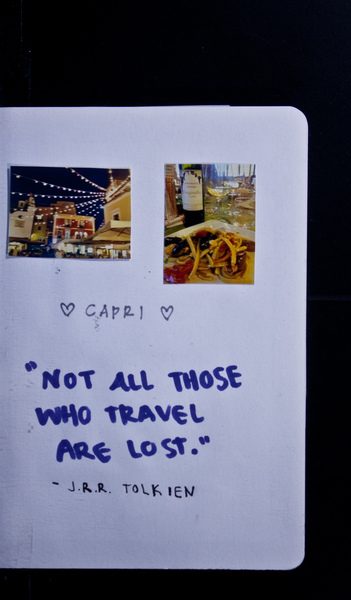 ♡ CAPRI ♡
"NOT ALL THOSE
WHO TRAVEL
ARE LOST."
- J.R.R. TOLKIEN